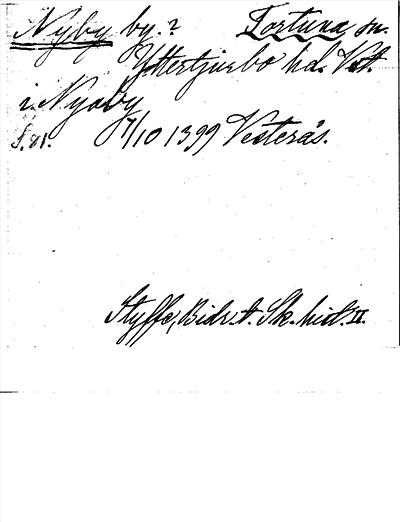 Nyby by.? Tortuna sn.
Yttertjurbo hd. Vstm.
i. Nyaby
s. 81. 7/10 1399 Vesterås.
Styffe, Bidr. t. Sk. hist. II.